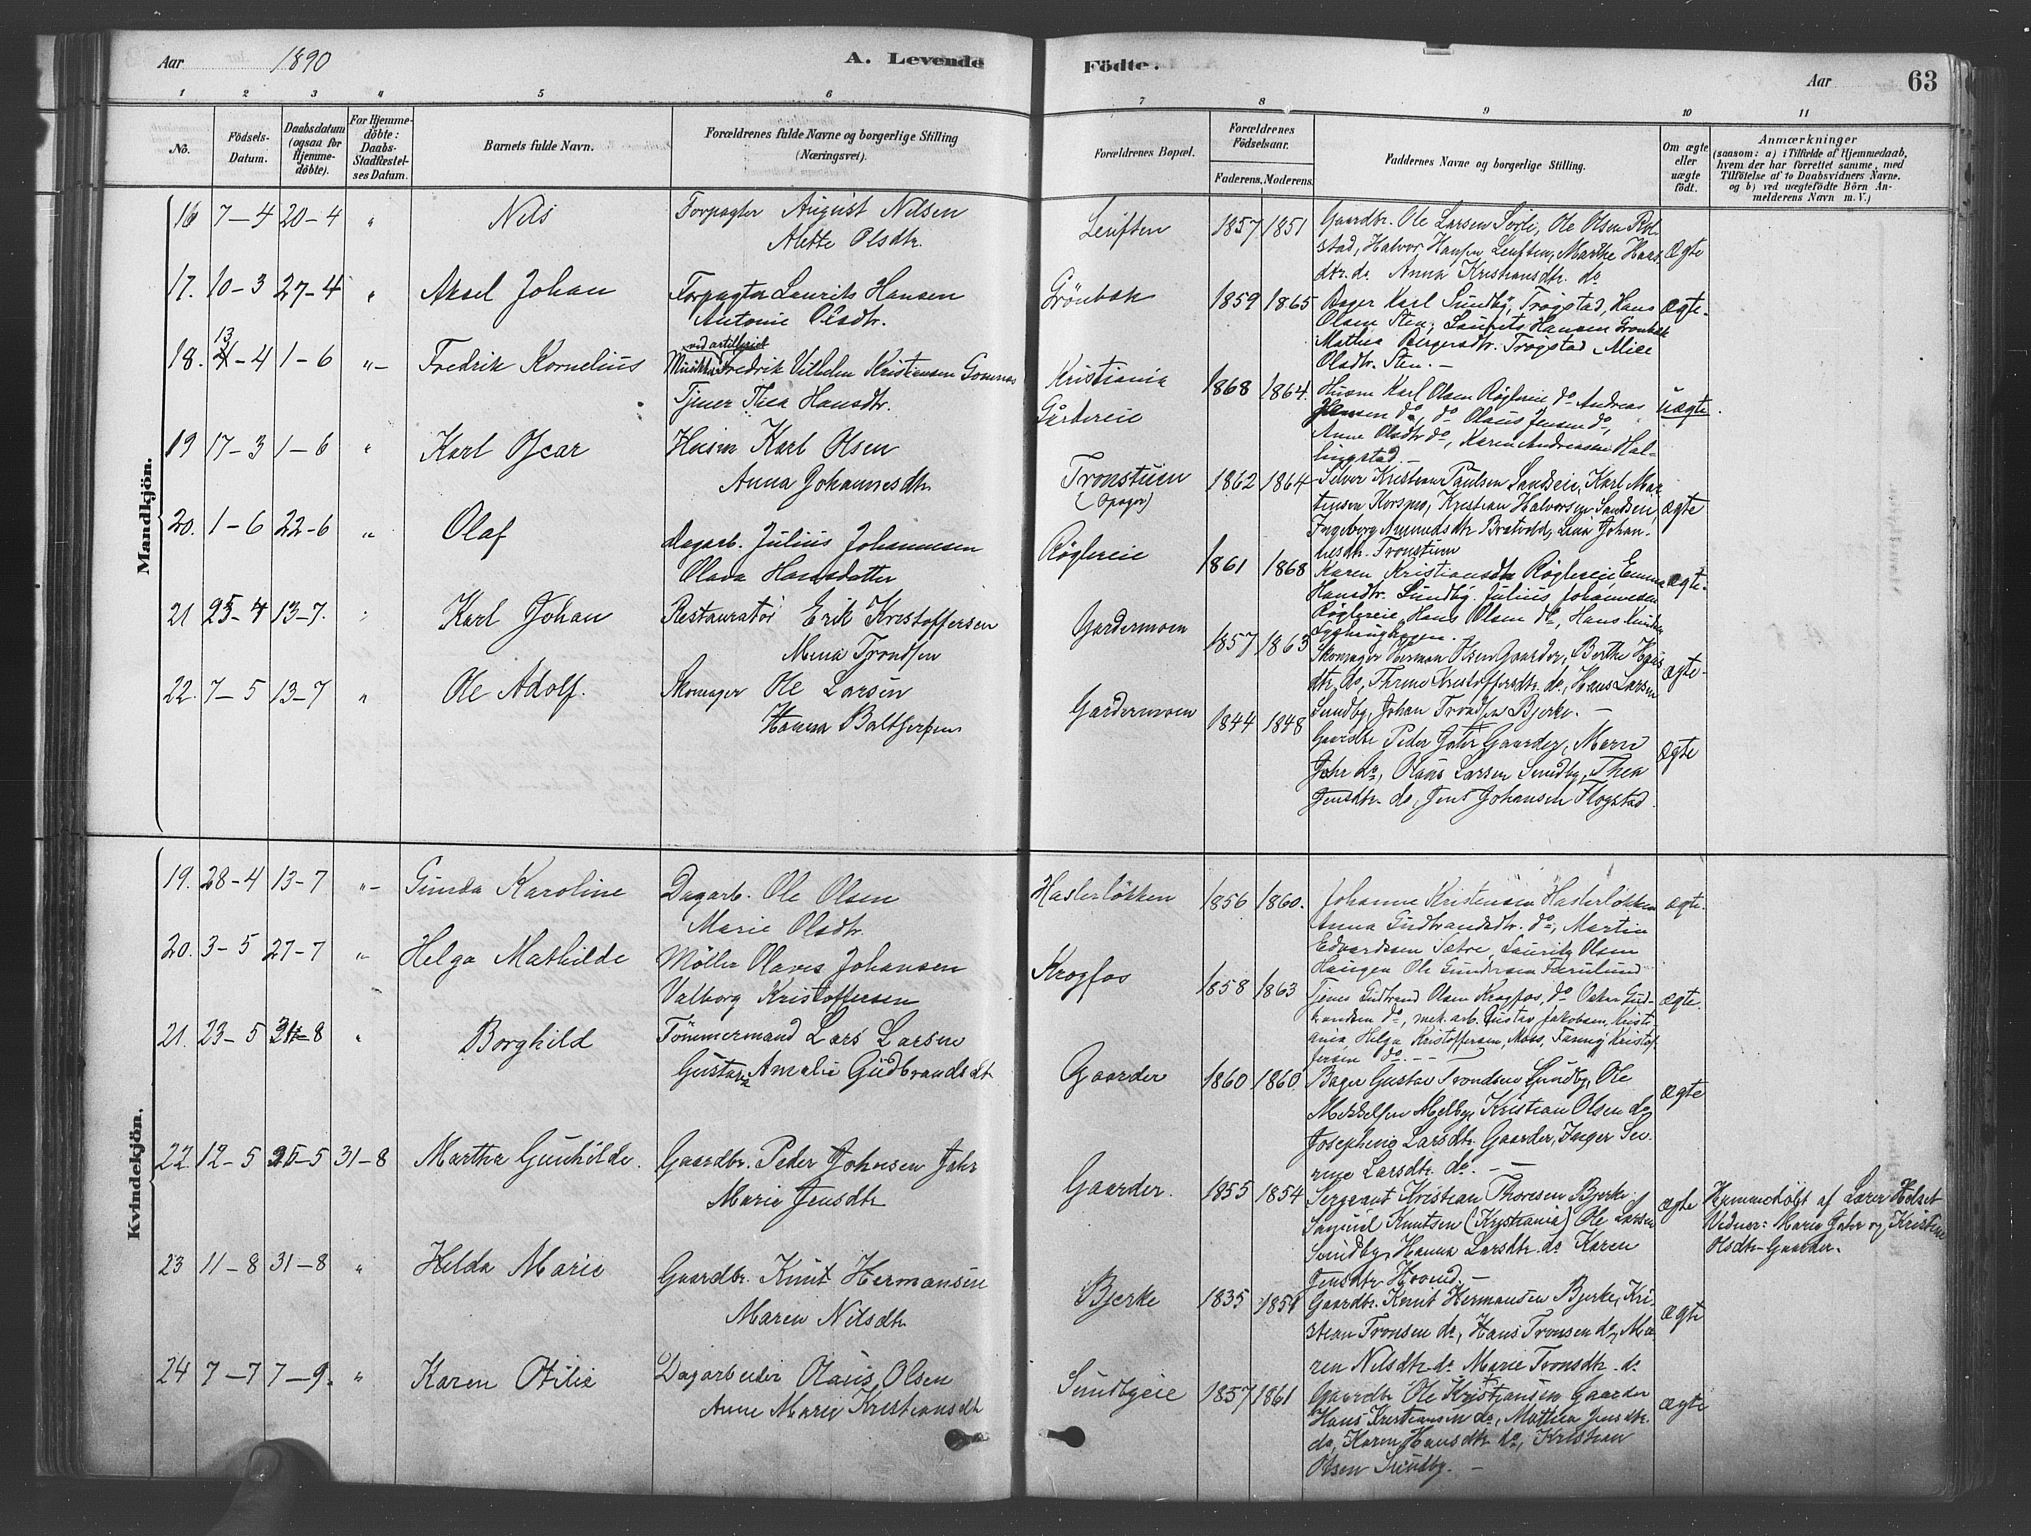 Aar 1890 A. Levende
Födte. Aar 63
1 2 3 4 5 6
7 8 9 10 11
No.
Födsels-Datum.
Daabsdatum (ogsaa for Hjemme-döbte).
For Hjemme-döbte: Daabs-Stadfæstel-ses Datum.
Barnets fulde Navn.
Forældrenes fulde Navne og borgerlige Stilling
(Næringsvei).
Forældrenes Bopæl.
Forældrenes Födselsaar.
Faderens. Moderens.
Faddernes Navne og borgerlige Stilling.
Om ægte eller uægte födt.
Anmærkninger
(saasom: a) i Tilfælde af Hjemmedaab,
hvem der har forrettet samme, med
Tilföielse af to Daabsvidners Navne.
og b) ved uægtefödte Börn An-
melderens Navn m. V.)
Mandkjön.
16 7-4 20-4 " Nils Forpagter August Nilsen
Alette Olsdtr.
17. 10-3 27-4 " Aksel Johan Forpagter Laurits Hansen
Antonie Olsdtr.
ved artilleriet
18. 13-4 1-6 " Fredrik Kornelius Fredrik Vilhelm Kristensen
Tjener Thea Hansdtr.
19 17-3 1-6 " Karl Oscar Husm Karl Olsen
Anna Johannesdtr
20. 1-6 22-6 " Olaf Dagarb. Julius Johannesen
Olava Hansdatter
21 25-4 13-7. " Karl Johan Restauratör Erik Kristoffersen
Mina Trondsen
22. 7-5 13-7 " Ole Adolf. Skomager Ole Larsen
Hanna
Kvindekjön.
19. 28-4 13-7 " Gunda Karoline Dagarb. Ole Olsen
Marie Olsdtr.
20. 3-5 27-7 " Helga Mathilde Möller Olaves Johansen
Valborg Kristoffersen
21. 23-5 31-8 " Borghild Tömmermand Lars Larsen
Gustava Amalie Gudbrandsdt
22 12-5 25-5 31-8 Martha Gunhilde. Gaardbr. Peder Johnsen Jahr
Marie Jensdtr
23 11-8 31-8 " Hilda Marie Gaardbr. Knut Hermansen
Maren Nilsdtr
24 7-7 7-9. " Karen Otilie Dagarbeider Olaus Olsen
Anne Marie Kristiansdt
Leuften 1857 1851 Gaardbr. Ole Larsen Sörli, Ole Olsen Röl-
stad, Halvor Hansen Leuften, Marthe Hans
dtr. do Anna Kristiansdtr. do
Ægte
Grönbæk 1859 1865 Bager Karl Sundby, Trögstad, Hans
Olsen Sten, Laurits Hansen Grönbæk
Mathea Trögstad
Olsdtr. Sten. -
Ægte.
Kristiania
Gårdereie 1868 1864. Husm Karl Olsen Röglereie do Andreas
Jensen do, do Olaus Jensen do,
Anne Olsdtr do, Karen Andreasen Hal-
lingstad. -
uægte.
Tronstuen
(Opager) 1862 1864 Kristian Paulsen Karl Mar-
tinsen Korsmo, Kristian Halvorsen Sandsen,
Ingeborg Amundsdtr Lina Johan-
nesdtr. Tronstuen
Ægte
Röglereie 1861 1868 Karen Kristiansdtr Röglereie, Emma
Hansdtr. Sundby, Julius Johannesen
Röglereie, Hans Olsen do, Hans Knudsen
Ægte.
Gardermoen 1857 1863 Skomager Herman Olsen Gaarder, Berthe Hans
dtr. do, Thrine Kristoffersdtr. do, Hans Larsen
Sundby, Johan Trondsen Bjerke. -
Ægte.
Gardermoen 1844 1848 Gaardbr Peder Jahr Gaarder, Maren
Jahr do, Olaus Larsen Sundby, Thea
Jensdtr. do, Jens Johansen Flogstad.
Ægte
Haslerlökken 1856 1860. Johanne Kristensen Haslerlökken
Anna Gudbrandsdtr. do, Martin
Edvardsen Sætre, Lauritz Olsen
Haugen Ole Gundersen Færulund
Ægte.
Krogfos 1858 1863 Tjener Gudbrand Olsen Krogfos, do Oskar Gud-
brandsen do, mek. arb. Gustav Jakobsen, Kristi-
ania Helga Kristoffersen, Moss, Fanny Kristof-
fersen do. - -
Ægte.
Gaarder 1860 1860 Bager Gustav Trondsen Sundby, Ole
Mikkelsen Melby, Kristian Olsen do
Josephine Larsdtr. Gaarder, Inger Se-
rine Larsdtr. do. -
Ægte
Gaarder. 1855 1854 Sergeant Kristian Thoresen Bjerke.
Samuel Knutsen (Kristiania) Ole Larsen
Sundby, Hanna Larsdtr. do Karen
Jensdtr Hovind. -
Ægte Hjemmedöbt af Lærer Holset
Vidner: Marie Jahr og Kristine
Olsdtr Gaarder.
Bjerke 1835 1851 Gaardbr. Knut Hermansen Bjerke, Kri-
stian Tronsen do, Hans Tronsen do, Ma-
ren Nilsdtr. do Marie Tronsdtr. do
Ægte
Sundbyeie 1857 1861 Gaardbr Ole Kristiansen Gaarder
Hans Kristiansen do, Mathea Jensdtr.
do, Karen Hansdtr do, Kristian
Olsen Sundby. -
Ægte